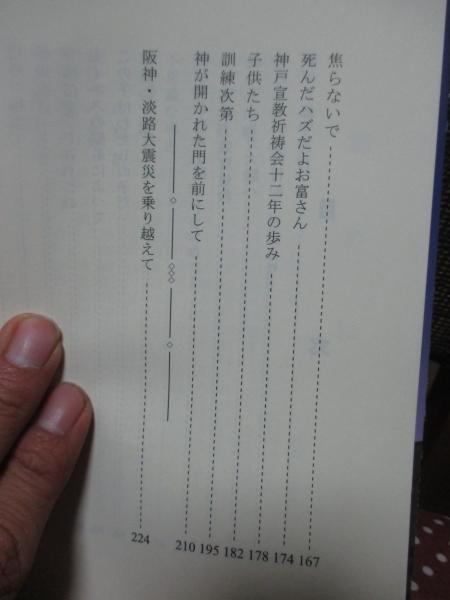 焦らないで 167
死んだハズだよお富さん 174
神戸宣教祈祷会十二年の歩み 178
子供たち 182
訓練次第 195
神が開かれた門を前にして 210
阪神・淡路大震災を乗り越えて 224